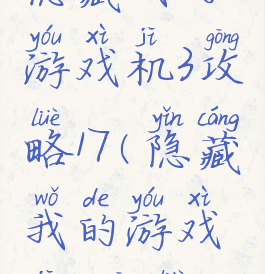 yóu xì jī gōng
游戏机3攻
lüè yǐn cáng
略17(隐藏
wǒ de yóu xì
我的游戏